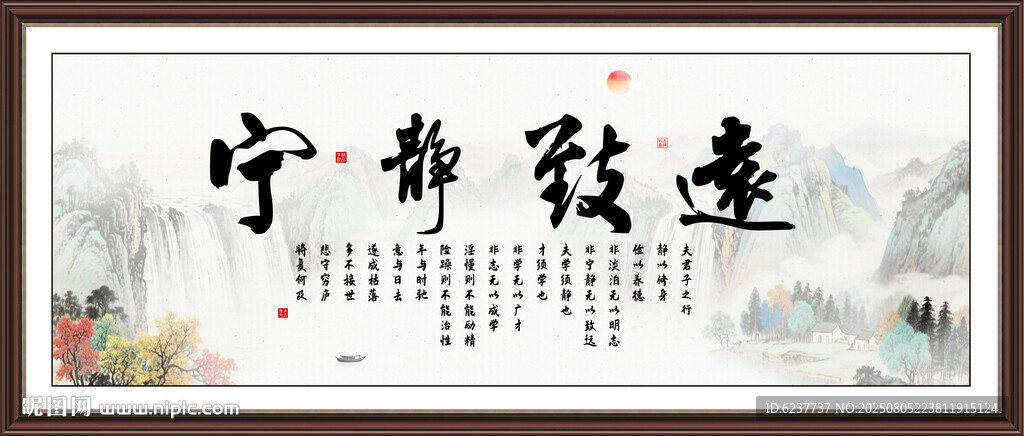 宁静致遠
夫君子之行
静以修身
俭以养德
非淡泊无以明志
非宁静无以致远
夫学须静也
才须学也
非学无以广才
非志无以成学
淫慢则不能励精
险躁则不能治性
年与时驰
意与日去
遂成枯落
多不接世
悲守穷庐
将复何及
昵图网 www.nipic.com
ID:6237737 NO:20250805223811915124